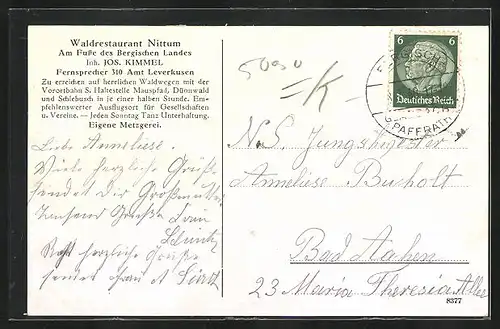 Waldrestaurant Nittum
Am Fuße des Bergischen Landes
Inh. JOS. KIMMEL
Fernsprecher 310 Amt Leverkusen
Zu erreichen auf herrlichen Waldwegen mit der
Vorortbahn S. Haltestelle Mauspfad, Dünnwald
und Schlebusch in je einer halben Stunde. Em-
pfehlenswerter Ausflugsort für Gesellschaften
u. Vereine. — Jeden Sonntag Tanz-Unterhaltung.
Eigene Metzgerei.
Liebe Anneliese.
Viele herzliche Grüße
sendet Dir Großmutter
Tausend Grüße
herzliche Grüße
sendet
5090
=K-
6 6
Deutsches Reich
PAFFRATH
N.S. Jungschwester
Anneliese Bucholt
Bad Aachen
23 Maria Theresia Allee
8377